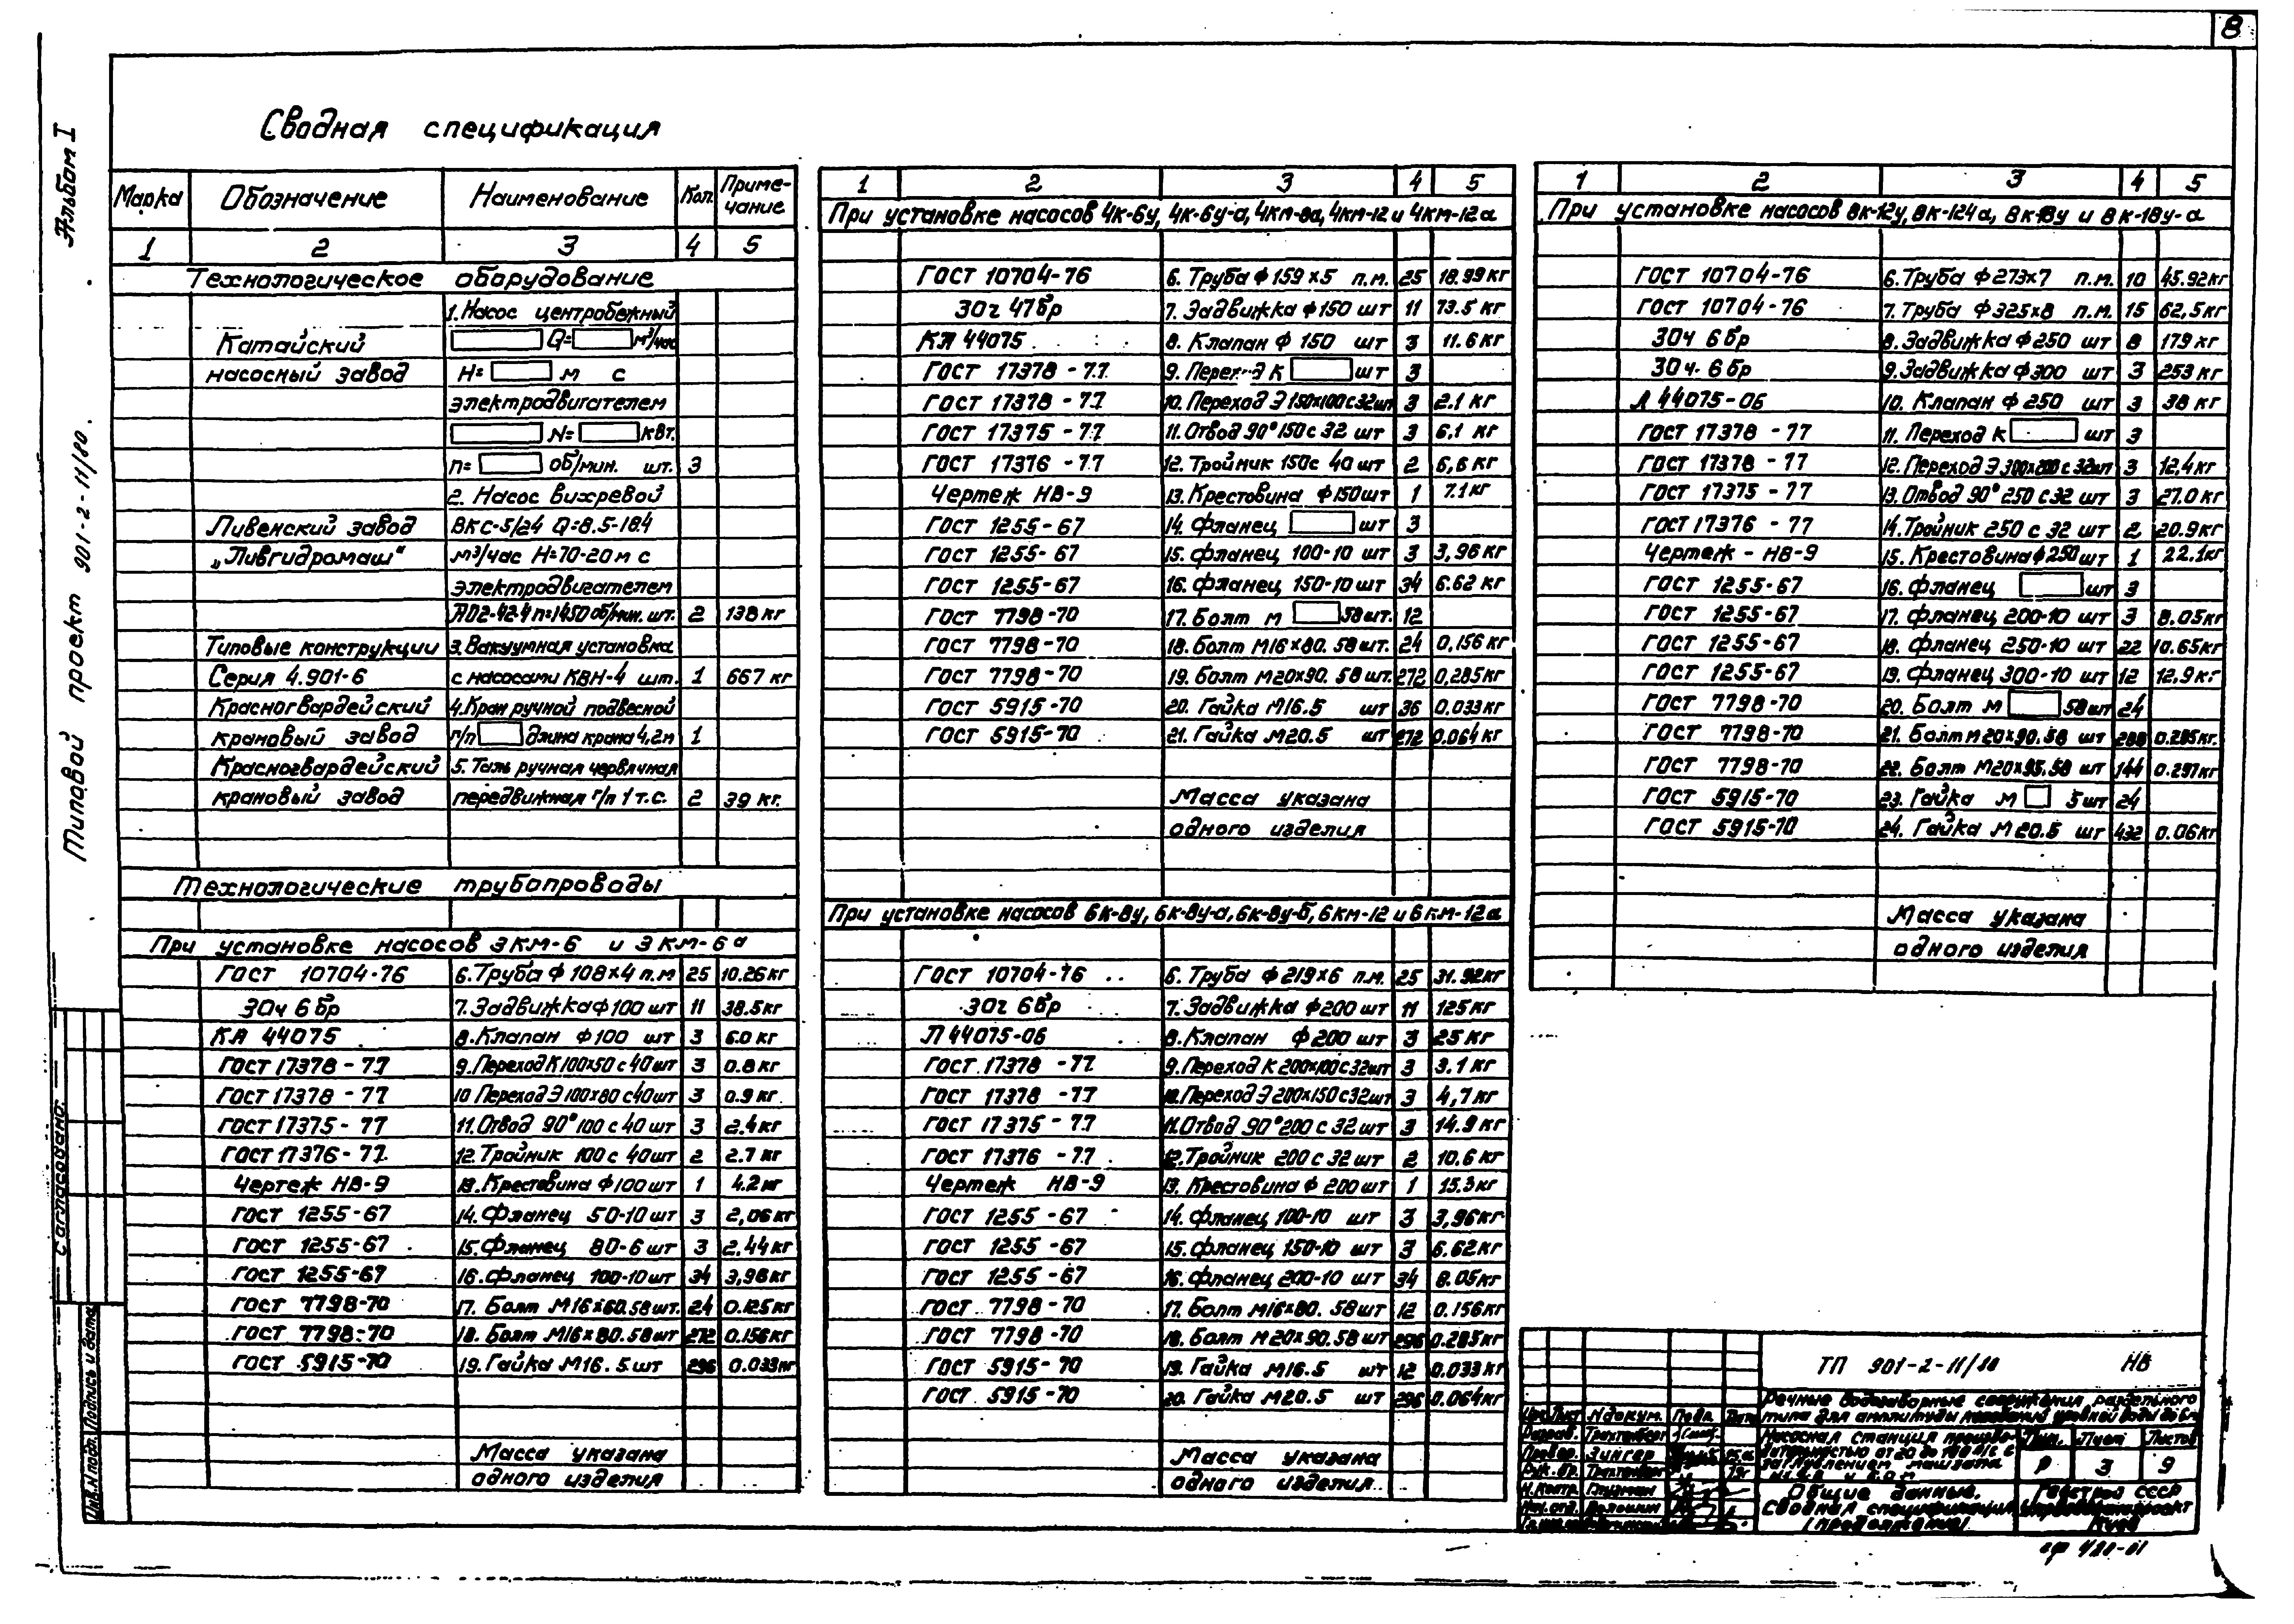 8
Альбом I
Типовой проект 901-2-11/80.
Согласовано:
Инв.N подл. Подпись и дата
Сводная спецификация
Марка Обозначение Наименование Кол. Приме-
чание
1 2 3 4 5
Технологическое оборудование
1. Насос центробежный
Катайский Q= м³/час
насосный завод H= м с
электродвигателем
N= квт.
n= об/мин. шт. 3
2. Насос вихревой
Ливенский завод ВКС-5/24 Q=8.5-18.4
„Ливгидромаш" м³/час H=70-20м с
электродвигателем
АО2-42-4 n=1450 об/мин. шт. 2 138 кг
Типовые конструкции 3. Вакуумная установка
Серия 4.901-6 с насосами КВН-4 шт. 1 667 кг
Красногвардейский 4. Кран ручной подвесной
крановый завод г/п длина крана 4,2м 1
Красногвардейский 5. Таль ручная червячная
крановый завод передвижная г/п 1 т.с. 2 39 кг.
Технологические трубопроводы
При установке насосов 3КМ-6 и 3КМ-6а
ГОСТ 10704-76 6. Труба ф 108х4 п.м 25 10.26кг
30ч 6бр 7. Задвижка ф100 шт 11 38.5кг
КА 44075 8. Клапан ф100 шт 3 6.0 кг
ГОСТ 17378-77 9. Переход К100х50 с 40 шт 3 0.8 кг
ГОСТ 17378-77 10 Переход Э 100х80 с40шт 3 0.9 кг.
ГОСТ 17375-77 11. Отвод 90° 100 с 40 шт 3 2.4кг
ГОСТ 17376-77 12. Тройник 100 с 40шт 2 2.7 кг
Чертеж НВ-9 13. Крестовина ф100 шт 1 4.2 кг
ГОСТ 1255-67 14. Фланец 50-10 шт 3 2,06 кг
ГОСТ 1255-67 15. Фланец 80-6 шт 3 2.44 кг
ГОСТ 1255-67 16. Фланец 100-10 шт 34 3,96 кг
ГОСТ 7798-70 17. Болт М16х60.58шт. 24 0.125кг
ГОСТ 7798-70 18. Болт М16х80.58шт 272 0.156кг
ГОСТ 5915-70 19. Гайка М16.5 шт 296 0.033кг
Масса указана
одного изделия
1 2 3 4 5
При установке насосов 4к-6у, 4к-6у-а, 4км-8а, 4км-12 и 4км-12а
ГОСТ 10704-76 6. Труба ф 159 х5 п.м. 25 18.99 кг
30ч 47бр 7. Задвижка ф150 шт 11 73.5 кг
КЛ 44075 8. Клапан ф 150 шт 3 11.6 кг
ГОСТ 17378-77 9. Переход К шт 3
ГОСТ 17378-77 10. Переход Э 150х100 с 32шт 3 2.1 кг
ГОСТ 17375-77 11. Отвод 90° 150 с 32 шт 3 6,1 кг
ГОСТ 17376-77 12. Тройник 150с 40 шт 2 6,6 кг
Чертеж НВ-9 13. Крестовина ф150шт 1 7.1 кг
ГОСТ 1255-67 14. Фланец шт 3
ГОСТ 1255-67 15. Фланец 100-10 шт 3 3,96 кг
ГОСТ 1255-67 16. Фланец 150-10 шт 34 6.62 кг
ГОСТ 7798-70 17. Болт м 58шт. 12
ГОСТ 7798-70 18. Болт М16х80. 58 шт. 24 0,156 кг
ГОСТ 7798-70 19. Болт М20х90. 58 шт. 272 0,285кг
ГОСТ 5915-70 20. Гайка М16.5 шт 36 0.033 кг
ГОСТ 5915-70 21. Гайка М20.5 шт 272 0.064 кг
Масса указана
одного изделия
При установке насосов 6к-8у, 6к-8у-а, 6к-8у-б, 6км-12 и 6км-12а
ГОСТ 10704-76 6. Труба ф 219х6 п.м. 25 31.92кг
30ч 6бр 7. Задвижка ф200 шт 11 125 кг
Л 44075-06 8. Клапан ф200 шт 3 25 кг
ГОСТ 17378-77 9. Переход К 200х100 с32шт 3 3.1 кг
ГОСТ 17378-77 10. Переход Э 200х150 с32шт 3 4,7 кг
ГОСТ 17375-77 11. Отвод 90° 200 с 32 шт 3 14.9 кг
ГОСТ 17376-77 12. Тройник 200 с 32 шт 2 10.6 кг
Чертеж НВ-9 13. Крестовина ф 200 шт 1 15.3 кг
ГОСТ 1255-67 14. Фланец 100-10 шт 3 3,96кг
ГОСТ 1255-67 15. Фланец 150-10 шт 3 6.62 кг
ГОСТ 1255-67 16. Фланец 200-10 шт 34 8.05 кг
ГОСТ 7798-70 17. Болт М16х80. 58шт 12 0.156 кг
ГОСТ 7798-70 18. Болт М20х90.58 шт 296 0.285кг
ГОСТ 5915-70 19. Гайка М16.5 шт 12 0.033 кг
ГОСТ 5915-70 20. Гайка М20.5 шт 296 0.064кг
Масса указана
одного изделия
1 2 3 4 5
При установке насосов 8к-12у, 8к-124а, 8к-18у и 8к-18у-а
ГОСТ 10704-76 6. Труба ф273х7 п.м. 10 45.92кг
ГОСТ 10704-76 7. Труба ф325х8 п.м. 15 62,5кг
30ч 6бр 8. Задвижка ф250 шт 8 179 кг
30ч. 6бр 9. Задвижка ф300 шт 3 253 кг
Л 44075-06 10. Клапан ф 250 шт 3 38 кг
ГОСТ 17378-77 11. Переход К шт 3
ГОСТ 17378-77 12. Переход Э 300х200 с 32шт 3 12,4 кг
ГОСТ 17375-77 13. Отвод 90° 250 с 32 шт 3 27.0 кг
ГОСТ 17376-77 14. Тройник 250 с 32 шт 2 20.9кг
Чертеж-НВ-9 15. Крестовина ф250 шт 1 22.1кг
ГОСТ 1255-67 16. Фланец шт 3
ГОСТ 1255-67 17. Фланец 200-10 шт 3 8.05кг
ГОСТ 1255-67 18. Фланец 250-10 шт 22 10.65кг
ГОСТ 1255-67 19. Фланец 300-10 шт 12 12.9 кг
ГОСТ 7798-70 20. Болт м 58шт 24
ГОСТ 7798-70 21. Болт М20х90.58 шт 288 0.285 кг.
ГОСТ 7798-70 22. Болт М20х95.58 шт 144 0.297кг
ГОСТ 5915-70 23. Гайка М 5шт 24
ГОСТ 5915-70 24. Гайка М20.5 шт 432 0.06 кг
Масса указана
одного изделия
ТП 901-2-11/80 НВ
Речные водозаборные сооружения раздельного
типа для амплитуды уровней воды до 6м
Насосная станция произво-
дительностью от 20 до 100 л/с с
заглублением машзала
Лист Листов
Р 3 9
Лист N докум. Подп.
Разраб. Трахтенберг
Провер. Зингер
Рук. гр. Трахтенберг
Н.контр. Глузман
Нач. отд.
Общие данные.
Сводная спецификация
(продолжение)
Госстрой СССР
Киев